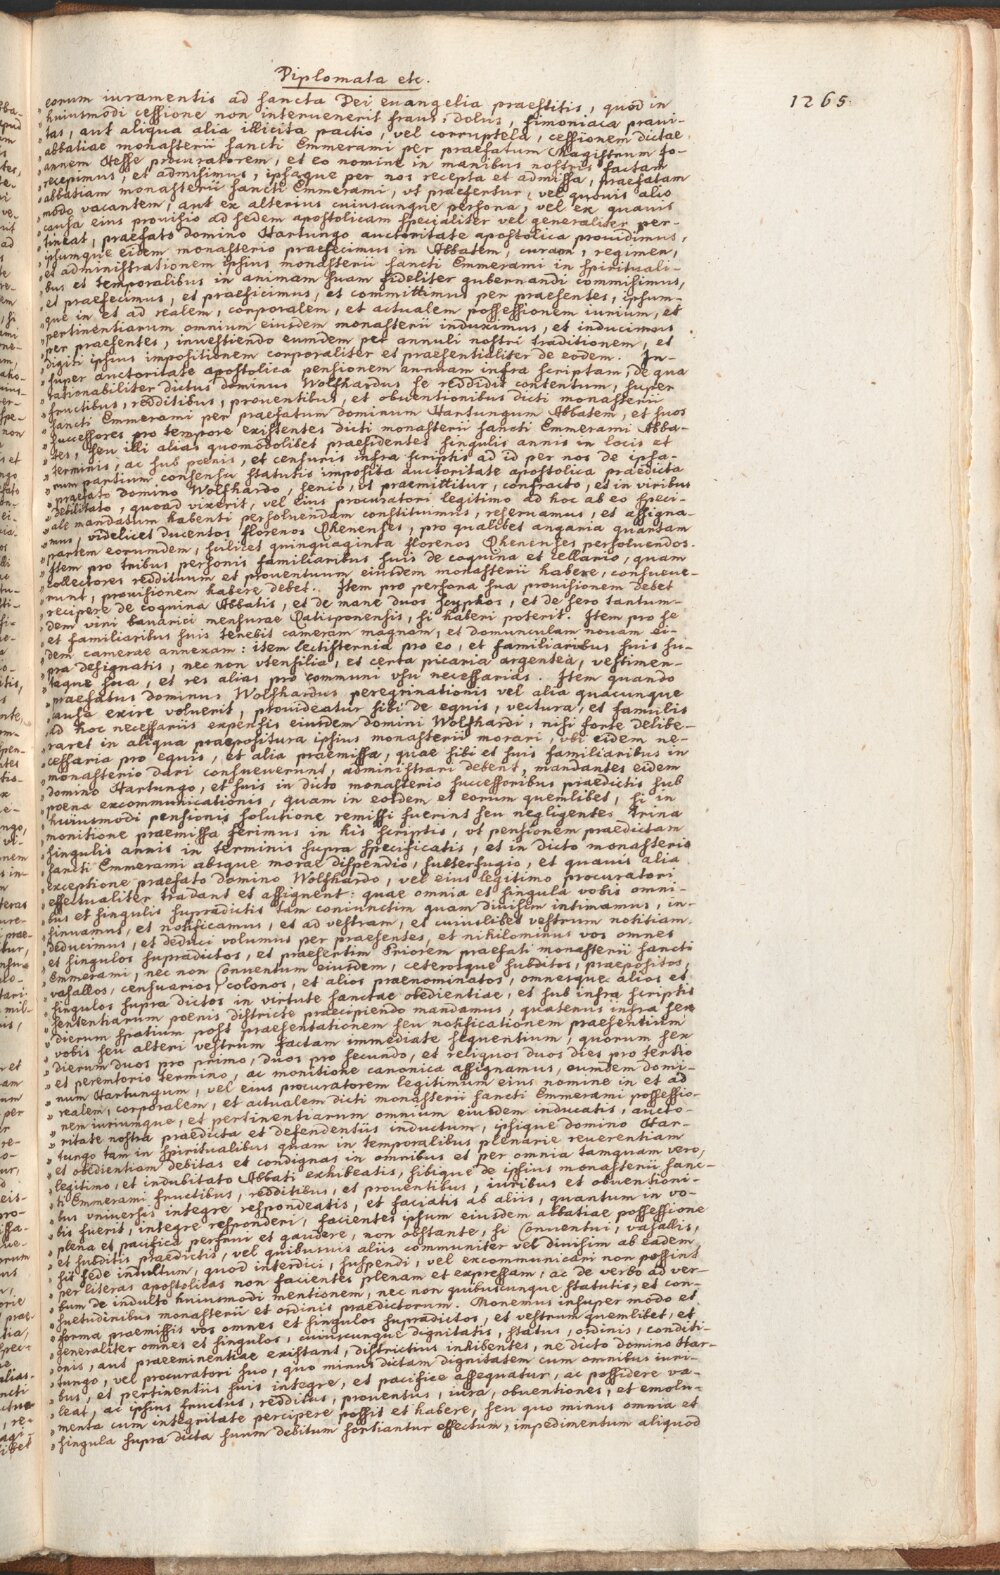 Diplomata etc.
1265.
„ eorum iuramentis ad sancta Dei euangelia praestitis, quod in
„ huiusmodi cessione non interuenerit fraus, dolus, simoniaca praui-
„ tas, aut aliqua alia illicita pactio, vel corruptela, cessionem dictae
„ abbatiae monasterii sancti Emmerami per praefatum Magistrum Jo-
„ annem Hesse procuratorem, et eo nomine in manibus nostris factam
„ recepimus, et admisimus, ipsaque per nos recepta et admissa, praefatam
„ abbatiam monasterii sancti Emmerami, vt praefertur, vel quouis alio
„ modo vacantem, aut ex alterius cuiuscunque persona, vel ex quauis
„ causa eius prouisio ad sedem apostolicam specialiter vel generaliter per-
„ tineat, praefato domino Hartungo auctoritate apostolica prouidimus,
„ ipsumque eidem monasterio praefecimus in Abbatem, curam, regimen,
„ et administrationem ipsius monasterii sancti Emmerami in spirituali-
„ bus et temporalibus in animam suam fideliter gubernandi commisimus,
„ et praefecimus, et praeficimus, et committimus per praesentes, ipsum-
„ que in et ad realem, corporalem, et actualem possessionem iurium, et
„ pertinentiarum omnium eiusdem monasterii induximus, et inducimus
„ per praesentes, inuestiendo eumdem per annuli nostri traditionem, et
„ digiti ipsius impositionem corporaliter et praesentialiter de eodem. In-
„ super auctoritate apostolica pensionem annuam infra scriptam, de qua
„ rationabiliter dictus dominus Wolfhardus se reddidit contentum, super
„ fructibus, redditibus, prouentibus, et obuentionibus dicti monasterii
„ sancti Emmerami per praefatum dominum Hartungum Abbatem, et suos
„ successores pro tempore existentes dicti monasterii sancti Emmerami Abba-
„ tes, seu illi alias quomodolibet praesidentes singulis annis in locis et
„ terminis, ac sub poenis, et censuris infra scriptis ad id per nos de ipsa-
„ rum partium consensu statutis imposita auctoritate apostolica praedicta
„ praefato domino Wolfhardo, senio, vt praemittitur, confracto, et in viribus
„ debilitato, quoad vixerit, vel eius procuratori legitimo ad hoc ab eo speci-
„ ale mandatum habenti persoluendam constituimus, reseruamus, et assigna-
„ mus, videlicet ducentos florenos Rhenenses, pro qualibet angaria quartam
„ partem eorumdem, scilicet quinquaginta florenos Rhenenses persoluendos.
„ Item pro tribus personis familiaribus suis de coquina et cellario, quam
„ collectores reddituum et prouentuum eiusdem monasterii habere, consueue-
„ runt, prouisionem habere debet. Item pro persona sua prouisionem debet
„ recipere de coquina Abbatis, et de mane duos scyphos, et de sero tantum-
„ dem vini bauarici mensurae Ratisponensis, si haberi poterit. Item pro se
„ et familiaribus suis tenebit cameram magnam, et domunculam nouam ei-
„ dem camerae annexam: item lectisternia pro eo, et familiaribus suis su-
„ pra designatis, nec non vtensilia, et certa picaria argentea, vestimen-
„ taque sua, et res alias pro communi vsu necessarias. Item quando
„ praefatus dominus Wolfhardus peregrinationis vel alia quacunque
„ causa exire voluerit, prouideatur sibi de equis, vectura, et familiis
„ ad hoc necessariis expensis eiusdem domini Wolfhardi, nisi forte delibe-
„ raret in aliqua praepositura ipsius monasterii morari, vbi eidem ne-
„ cessaria pro equis, et alia praemissa, quae sibi et suis familiaribus in
„ monasterio dari consueuerunt, administrari debent, mandantes eidem
„ domino Hartungo, et suis in dicto monasterio successoribus praedictis sub
„ poena excommunicationis, quam in eosdem et eorum quemlibet, si in
„ huiusmodi pensionis solutione remissi fuerint seu negligentes trina
„ monitione praemissa ferimus in his scriptis, vt pensionem praedictam
„ singulis annis in terminis supra specificatis, et in dicto monasterio
„ sancti Emmerami absque morae dispendio, subterfugio, et quauis alia
„ exceptione praefato domino Wolfhardo, vel eius legitimo procuratori
„ effectualiter tradant et assignent: quae omnia et singula vobis omni-
„ bus et singulis supradictis tam coniunctim quam diuisim intimamus, in-
„ sinuamus, et notificamus, et ad vestram, et cuiuslibet vestrum notitiam
„ deducimus, et deduci volumus per praesentes, et nihilominus vos omnes
„ et singulos supradictos, et praesertim Priorem praefati monasterii sancti
„ Emmerami, nec non Conuentum eiusdem, ceterosque subditos, praepositos,
„ vasallos, censuarios, colonos, et alios praenominatos, omnesque alios et
„ singulos supra dictos in virtute sanctae obedientiae, et sub infra scriptis
„ sententiarum poenis districte praecipiendo mandamus, quatenus infra sex
„ dierum spatium post praesentationem seu notificationem praesentium
„ vobis seu alteri vestrum factam immediate sequentium, quorum sex
„ dierum duos pro primo, duos pro secundo, et reliquos duos dies pro tertio
„ et peremtorio termino, ac monitione canonica assignamus, eumdem domi-
„ num Hartungum, vel eius procuratorem legitimum eius nomine in et ad
„ realem, corporalem, et actualem dicti monasterii sancti Emmerami possessio-
„ nem iuriumque, et pertinentiarum omnium eiusdem inducatis, aucto-
„ ritate nostra praedicta et defendentiis inductum, ipsique domino Har-
„ tungo tam in spiritualibus quam in temporalibus plenarie reuerentiam
„ et obedientiam debitas et condignas in omnibus et per omnia tamquam vero,
„ legitimo, et indubitato Abbati exhibeatis, sibique de ipsius monasterii sanc-
„ ti Emmerami fructibus, redditibus, et prouentibus, iuribus et obuentioni-
„ bus vniuersis integre respondeatis, et faciatis ab aliis, quantum in vo-
„ bis fuerit, integre responderi, facientes ipsum eiusdem abbatiae possessione
„ plena et pacifica perfrui et gaudere, non obstante, si Conuentui, vasallis,
„ et subditis praedictis, vel quibusuis aliis communiter vel diuisim ab eadem
„ sit sede indultum, quod interdici, suspendi, vel excommunicari non possint
„ per literas apostolicas non facientes plenam et expressam, ac de verbo ad ver-
„ bum de indulto huiusmodi mentionem, nec non quibuscunque statutis, et con-
„ suetudinibus monasterii et ordinis praedictorum. Monemus insuper modo et
„ forma praemissis vos omnes et singulos supradictos, et vestrum quemlibet, et
„ generaliter omnes et singulos, cuiuscunque dignitatis, status, ordinis, conditi-
„ onis, aut praeeminentiae existant, districtius inhibentes, ne dicto domino Har-
„ tungo, vel procuratori suo, quo minus dictam dignitatem cum omnibus iuri-
„ bus, et pertinentiis suis integre, et pacifice assequatur, ac possidere va-
„ leat, ac ipsius fructus, redditus, prouentus, iura, obuentiones, et emolu-
„ menta cum integritate percipere possit et habere, seu quo minus omnia et
„ singula supra dicta suum debitum sortiantur effectum, impedimentum aliquod